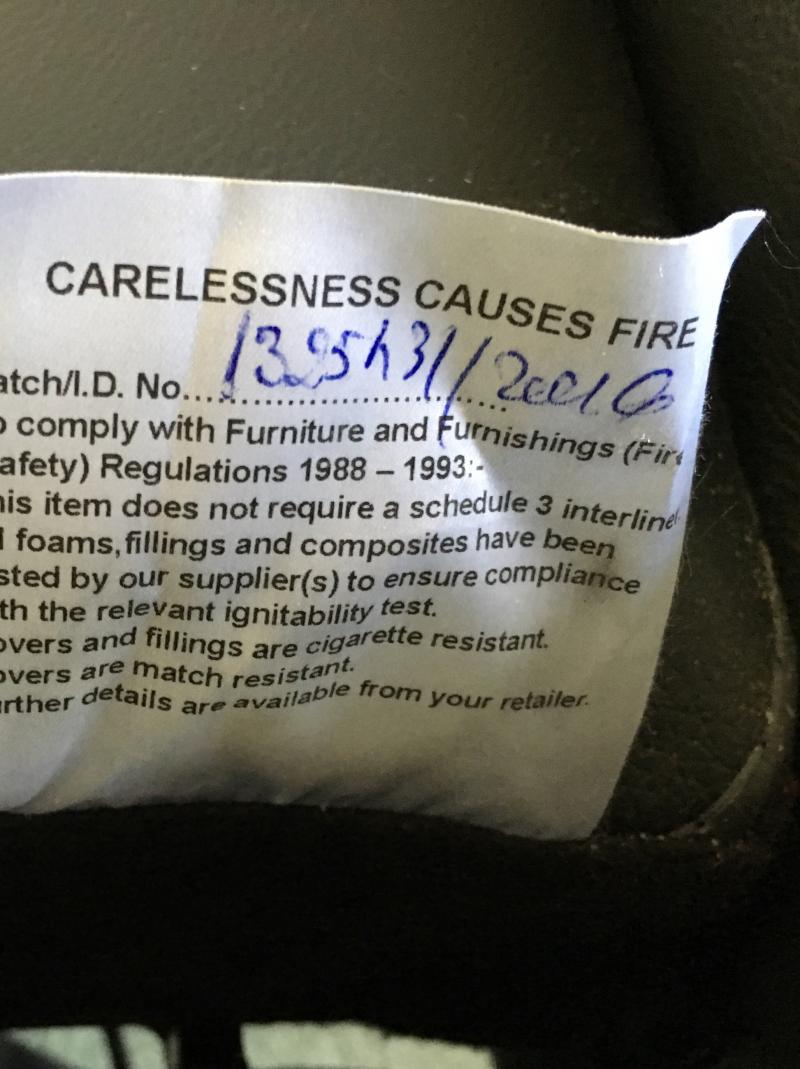 CARELESSNESS CAUSES FIRE
atch/I.D. No.....
o comply with Furniture and Furnishings (Fire
afety) Regulations 1988 – 1993:-
his item does not require a schedule 3 interliner
l foams,fillings and composites have been
sted by our supplier(s) to ensure compliance
th the relevant ignitability test.
overs and fillings are cigarette resistant.
overs are match resistant.
urther details are available from your retailer.